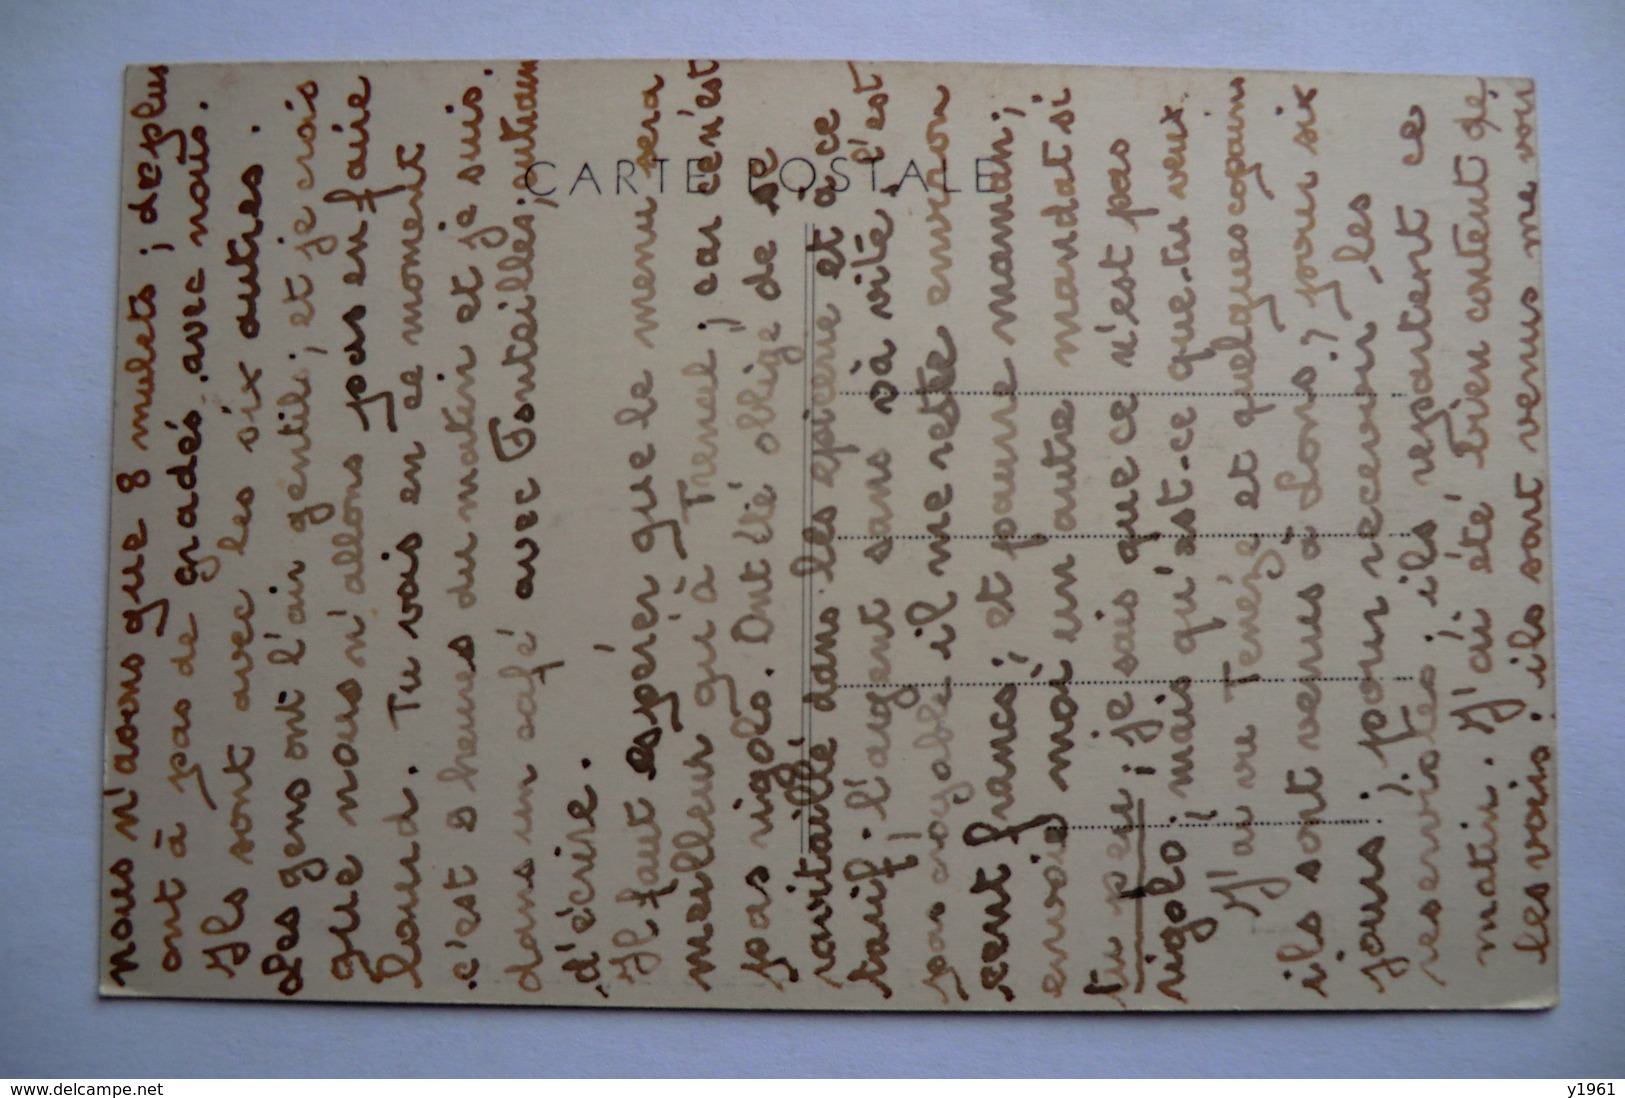 nous n'avons que 8 mulets ; de plus
ont à pas de gradés avec nous.
Ils sont avec les six autres.
Les gens ont l'air gentil ; et je crois
que nous n'allons pas en faire
lourd. Tu vois en ce moment
c'est 8 heures du matin et je suis
dans un café avec Fonteilles, entrain
d'écrire.
Il faut espérer que le menu sera
meilleur qu'à Trenal ; car ce n'est
pas rigolo. Ont été obligé de se
ravitaillé dans les épicerie et à ce
tarif. l'argent sans và vite, l'est
pas croyable il me reste environ
cent francs ; et pauvre maman ;
envoie moi un autre mandat si
tu peu ; je sais que ce n'est pas
rigolo mais qu'est-ce que tu veux
J'ai vu Tenéze et quelques copains
ils sont venus à Lons, pour six
jours ; pour recevoir les
reservistes ; ils repartent ce
matin. J'ai été bien content de
les voir ; ils sont venus me voir
CARTE POSTALE
www.delcampe.net
y1961